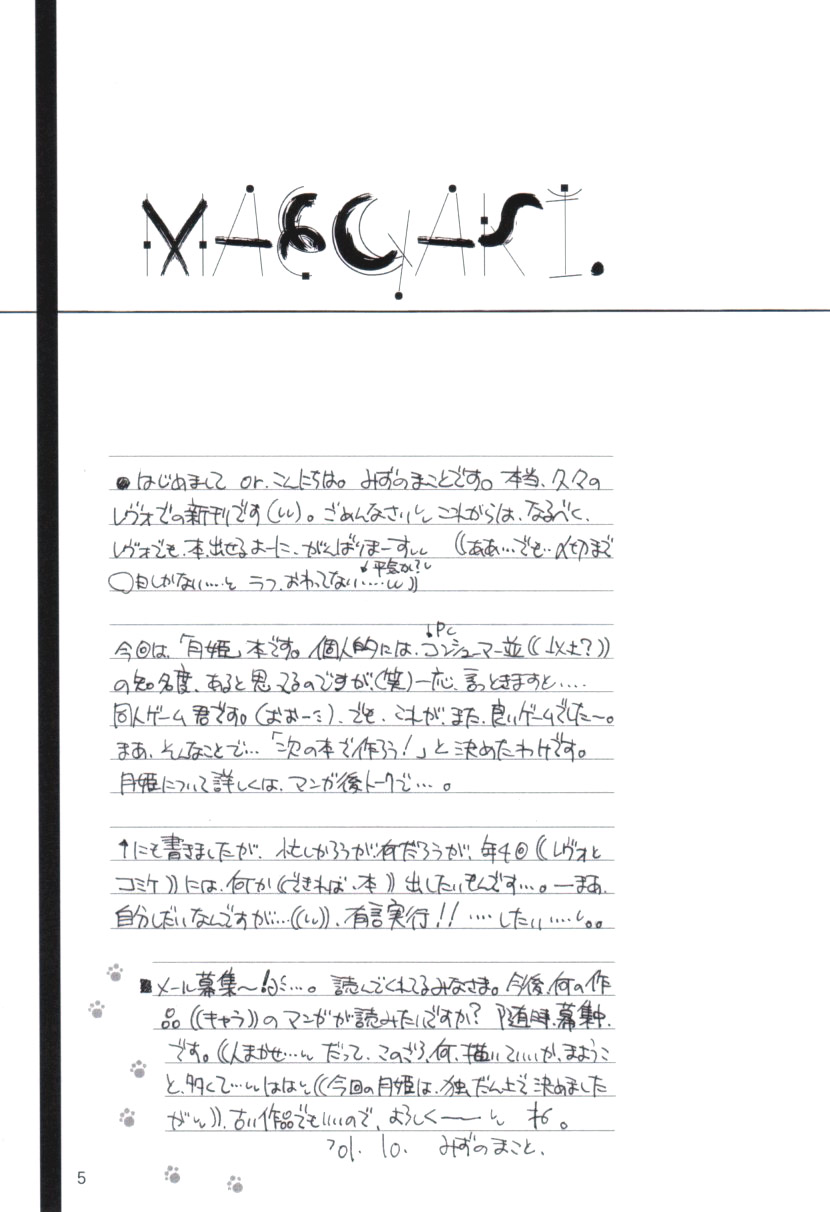 MAEGAKI.
●はじめまして or. こんにちは。 みずのまことです。 本当、久々の
レヴォでの新刊です(しし)。ごめんなさいしし これからは、なるべく、
レヴォでも、本、出せるよーに、がんばりまーすしし ((ああ…でも…〆切まで
↓平気か?し
○日しかない……と ラフ、おわってない……しし))
↓PC
今回は、「月姫」本です。個人的には、コンシューマー並((以上?))
の知名度、あると思ってるのですが、(笑)一応、言っときますと……
同人ゲーム君です。(おおーミ)、でも、これが、また、良いゲームでした〜。
まあ、そんなことで…「次の本で作ろう!」と決めたわけです。
月姫について詳しくは、マンガ後トークで…。
↑にも書きましたが、忙しかろうが、何だろうが、年4回((レヴォと
コミケ))には、何か((できれば、本))出したいもんです…。ーまあ、
自分しだいなんですが…((しし))、有言実行!! ……したい……し。。
■メール募集〜!…。読んでくれてるみなさま。今後、何の作
品((キャラ))のマンガが読みたいですか? 随時、募集中、
です。((人まかせ…しし だって、このごろ、何、描いていいか、まようこ
と、多くて…しし ははし((今回の月姫は、独だん上で決めました
がしし))、古い作品でもいいので、よろしくーーしし
'01. 10. みずのまこと、
5